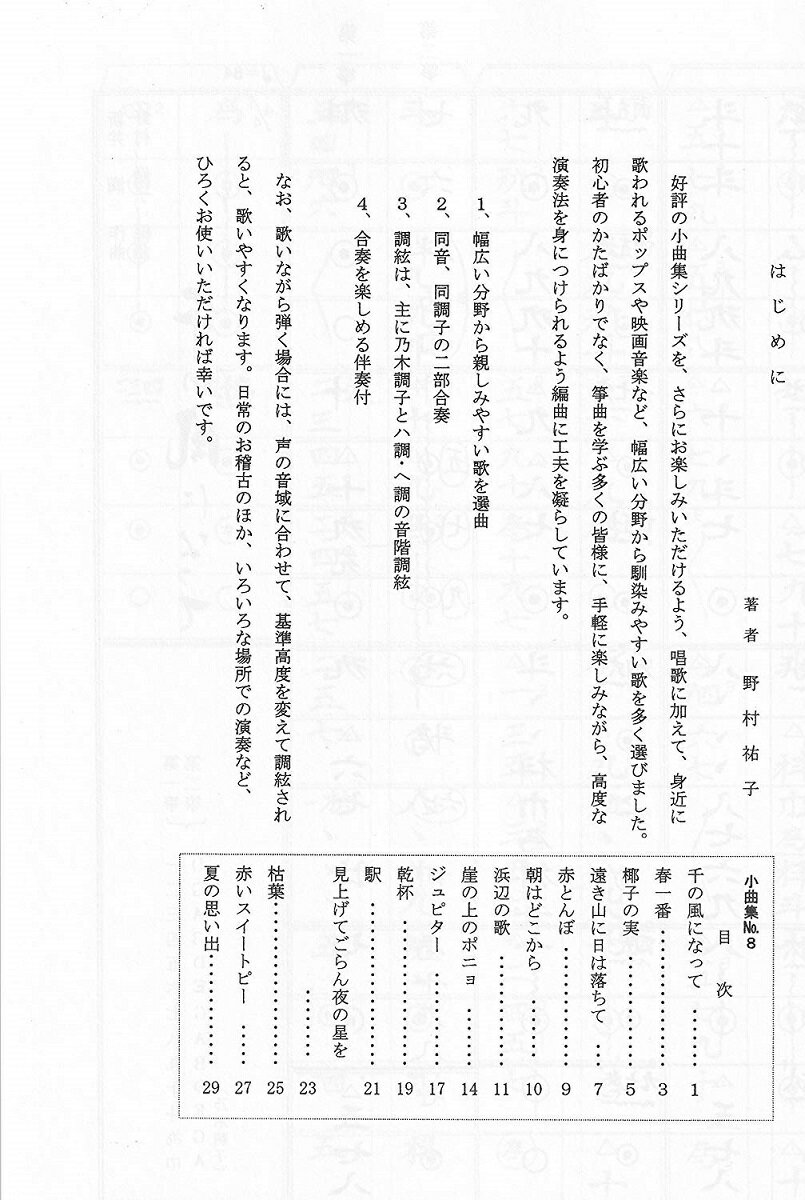 はじめに
著者　野村祐子
好評の小曲集シリーズを、さらにお楽しみいただけるよう、唱歌に加えて、身近に
歌われるポップスや映画音楽など、幅広い分野から馴染みやすい歌を多く選びました。
初心者のかたばかりでなく、箏曲を学ぶ多くの皆様に、手軽に楽しみながら、高度な
演奏法を身につけられるよう編曲に工夫を凝らしています。
1、幅広い分野から親しみやすい歌を選曲
2、同音、同調子の二部合奏
3、調絃は、主に乃木調子とハ調・ヘ調の音階調絃
4、合奏を楽しめる伴奏付
なお、歌いながら弾く場合には、声の音域に合わせて、基準高度を変えて調絃され
ると、歌いやすくなります。日常のお稽古のほか、いろいろな場所での演奏など、
ひろくお使いいただければ幸いです。
小曲集№8
目次
千の風になって ……… 1
春一番 ……… 3
椰子の実 ……… 5
遠き山に日は落ちて ……… 7
赤とんぼ ……… 9
朝はどこから ……… 10
浜辺の歌 ……… 11
崖の上のポニョ ……… 14
ジュピター ……… 17
乾杯 ……… 19
駅 ……… 21
見上げてごらん夜の星を
……… 23
枯葉 ……… 25
赤いスイートピー ……… 27
夏の思い出 ……… 29